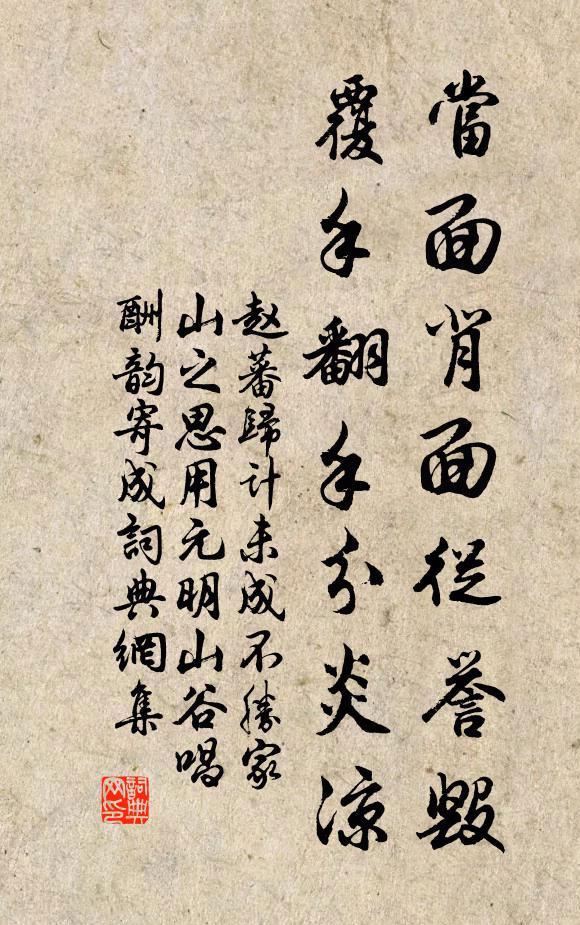 當面背面從誉毀
覆手翻手分炎涼
赵蕃歸計未成不勝家
山之思用元明山谷唱
酬韵寄成詞典網集
詞典
网印